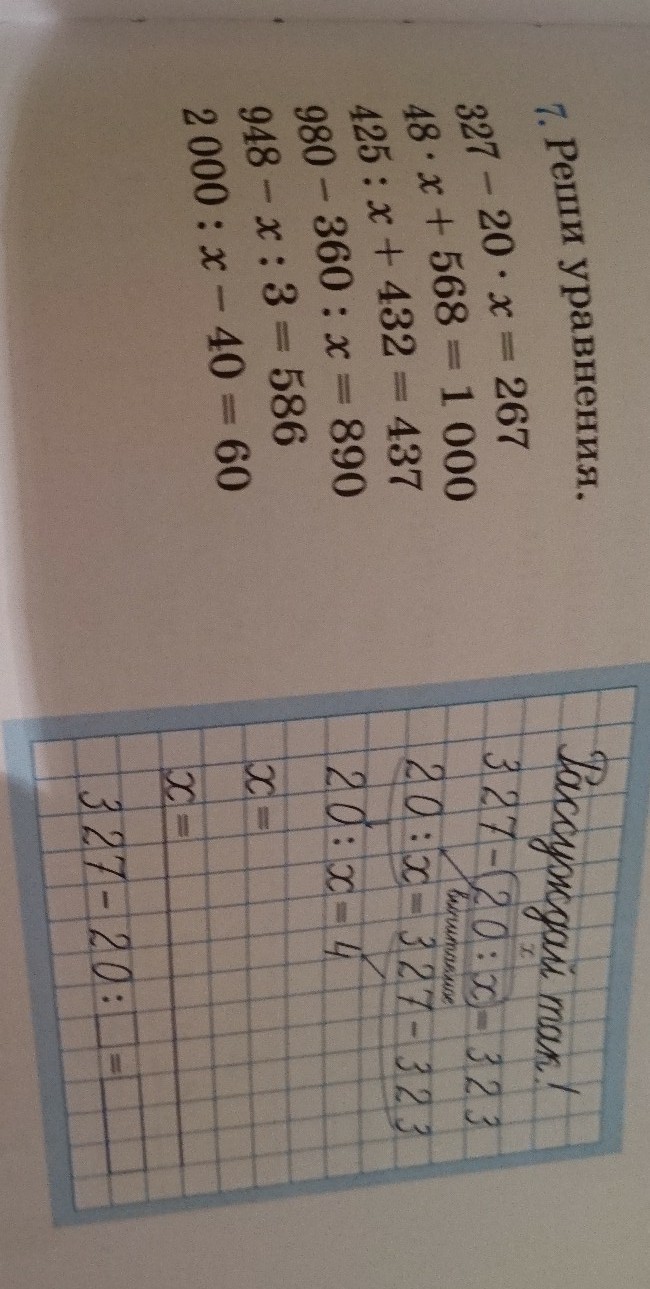 7. Реши уравнения.
327 − 20 · x = 267
48 · x + 568 = 1 000
425 : x + 432 = 437
980 − 360 : x = 890
948 − x : 3 = 586
2 000 : x − 40 = 60
Рассуждай так!
x
327 − (20 : x) = 323
вычитаемое
20 : x = 327 − 323
20 : x = 4
x =
x =
327 − 20 : =